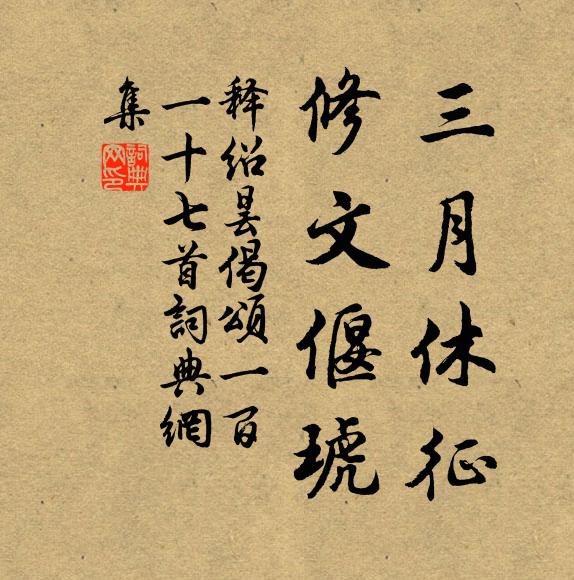 三月休征
修文偃琥
释绍昙偈颂一百
一十七首詞典網
集
詞典
网印